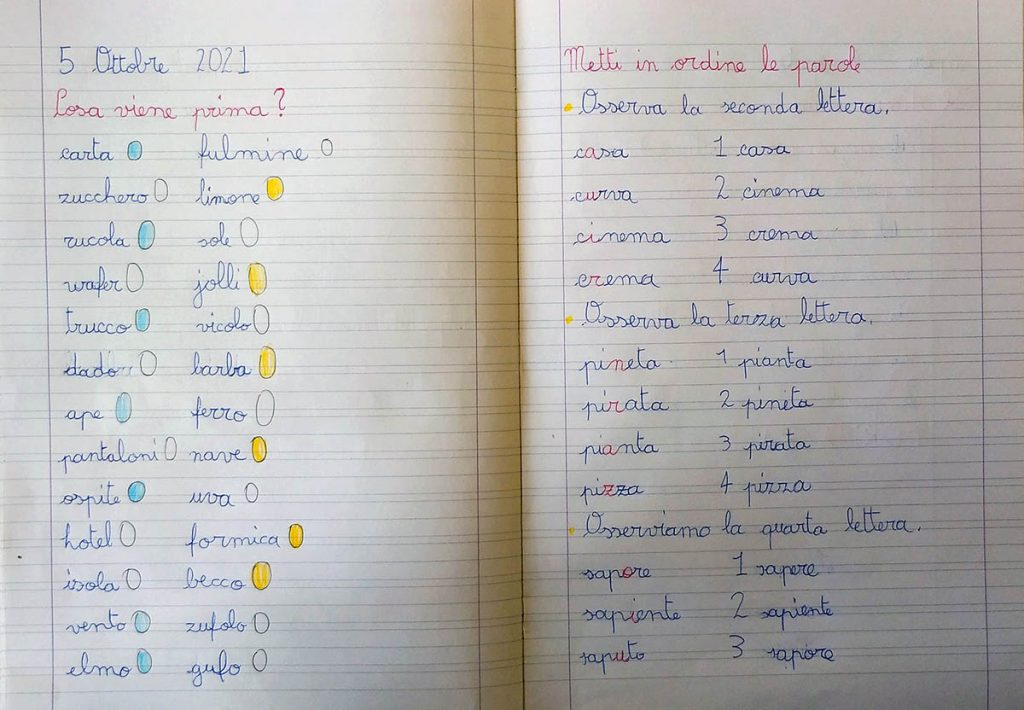 5 Ottobre 2021
Cosa viene prima?
carta fulmine
zucchero limone
rucola sole
wafer jolli
trucco vicolo
dado barba
ape ferro
pantaloni nave
ospite uva
hotel formica
isola becco
vento zufolo
elmo gufo
Metti in ordine le parole
Osserva la seconda lettera.
casa 1 casa
curva 2 cinema
cinema 3 crema
crema 4 curva
Osserva la terza lettera.
pineta 1 pianta
pirata 2 pineta
pianta 3 pirata
pizza 4 pizza
Osserviamo la quarta lettera.
sapore 1 sapere
sapiente 2 sapiente
saputo 3 sapore